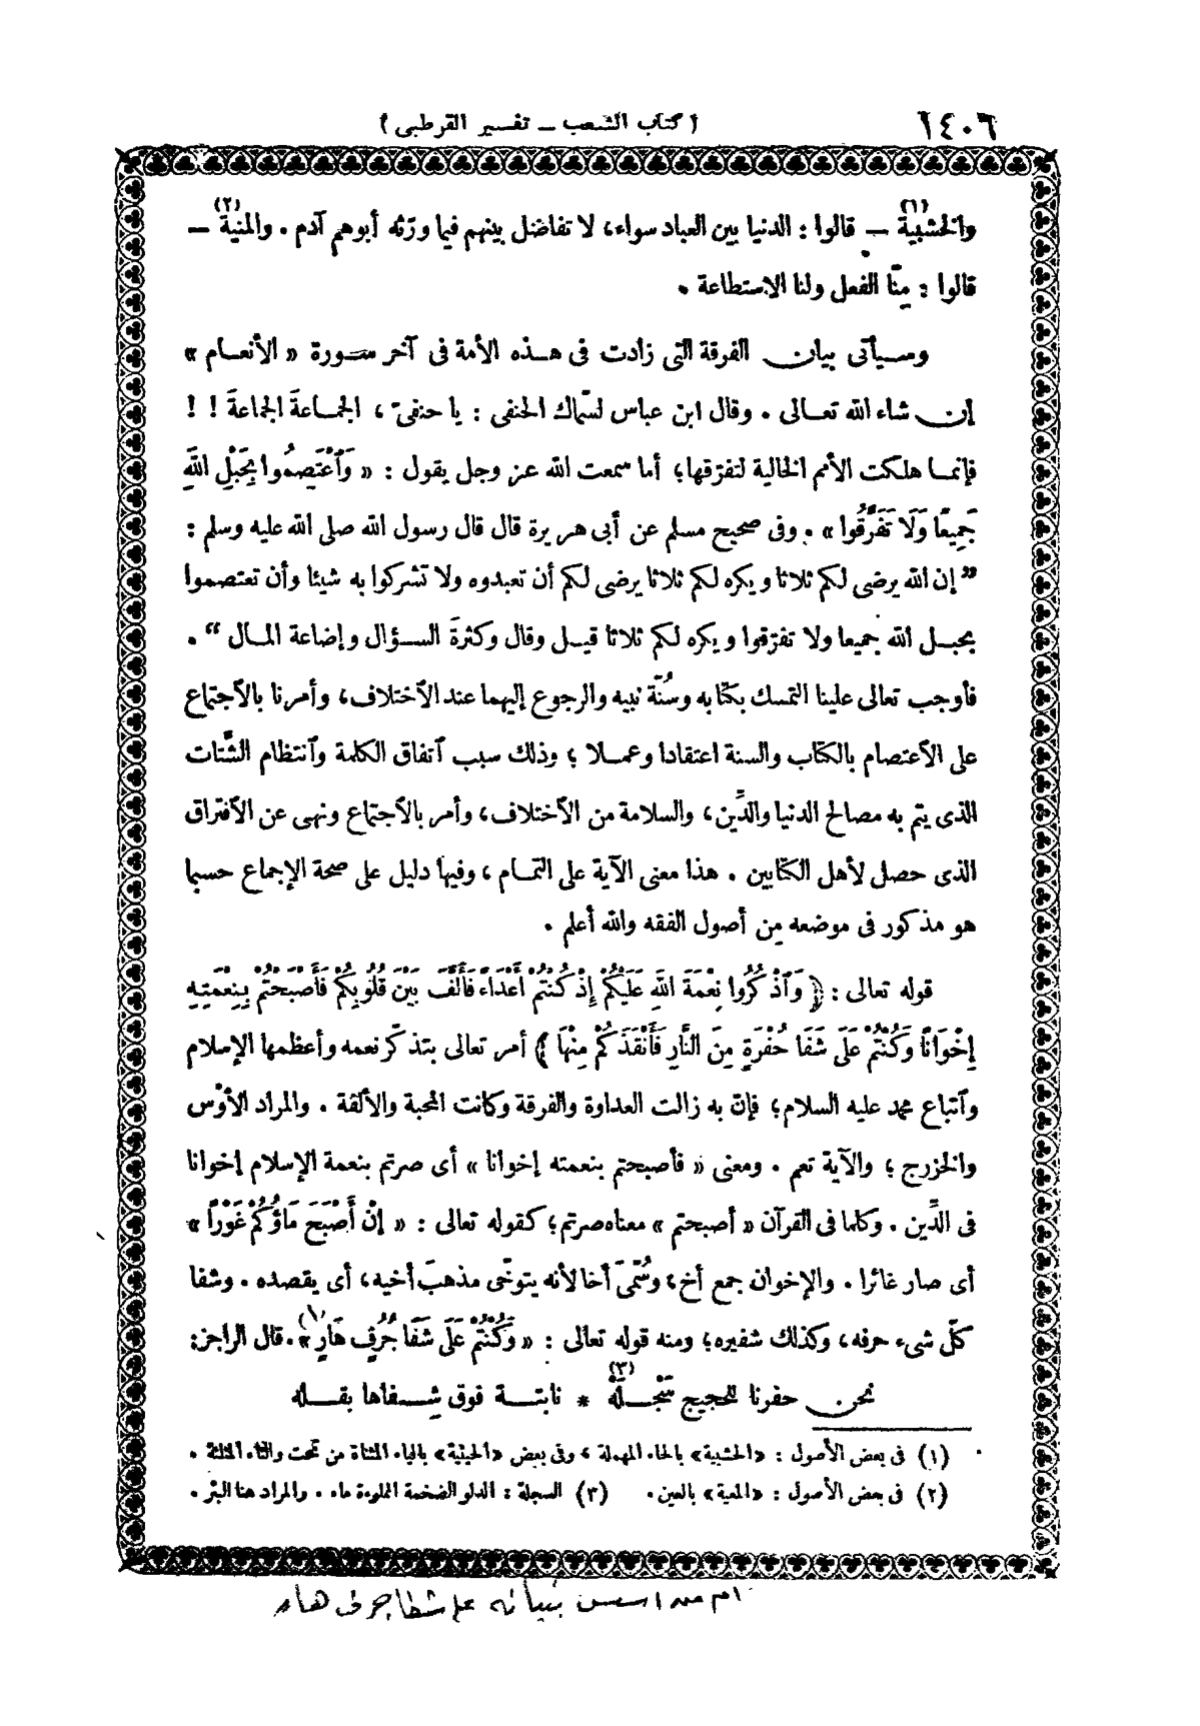 ١٤٠٦
( كتاب الشعب – تفسير القرطبى )
والخشبية(١) – قالوا : الدنيا بين العباد سواء، لا تفاضل بينهم فيما ورّثه أبوهم آدم . والمنية(٢) –
قالوا : مِنّا الفعل ولنا الاستطاعة .
وسيأتى بيان الفرقة التى زادت فى هذه الأمة فى آخر سورة « الأنعام »
إن شاء الله تعالى . وقال ابن عباس لسّماك الحنفى : يا حنفىّ ، الجماعةَ الجماعةَ ! !
فإنما هلكت الأمم الخالية لتفرّقها؛ أما سمعت الله عز وجل يقول : « وَآعْتَصِمُوا بِحَبْلِ اللهِ
جَمِيعًا وَلَا تَفَرَّقُوا » . وفى صحيح مسلم عن أبى هريرة قال قال رسول الله صلى الله عليه وسلم :
” إن الله يرضى لكم ثلاثا ويكره لكم ثلاثا يرضى لكم أن تعبدوه ولا تشركوا به شيئا وأن تعتصموا
بحبل الله جميعا ولا تفرّقوا ويكره لكم ثلاثا قيل وقال وكثرةَ السؤال وإضاعة المال “ .
فأوجب تعالى علينا التمسك بكتابه وسُنّة نبيه والرجوع إليهما عند الآختلاف، وأمرنا بالآجتماع
على الآعتصام بالكتاب والسنة اعتقادا وعملا ؛ وذلك سبب آتفاق الكلمة وآنتظام الشَّتات
الذى يتم به مصالح الدنيا والدِّين، والسلامة من الآختلاف، وأمر بالآجتماع ونهى عن الآفتراق
الذى حصل لأهل الكتابين . هذا معنى الآية على التمام ، وفيها دليل على صحة الإجماع حسبما
هو مذكور فى موضعه من أصول الفقه والله أعلم .
قوله تعالى : ﴿ وَآذْكُرُوا نِعْمَةَ اللهِ عَلَيْكُمْ إِذْ كُنْتُمْ أَعْدَاءً فَأَلَّفَ بَيْنَ قُلُوبِكُمْ فَأَصْبَحْتُمْ بِنِعْمَتِهِ
إِخْوَانًا وَكُنْتُمْ عَلَى شَفَا حُفْرَةٍ مِنَ النَّارِ فَأَنْقَذَكُمْ مِنْهَا ﴾ أمر تعالى بتذكّر نعمه وأعظمها الإسلام
وآتباع محمد عليه السلام؛ فإن به زالت العداوة والفرقة وكانت المحبة والألفة . والمراد الأوْس
والخزرج ؛ والآية تعم . ومعنى « فأصبحتم بنعمته إخوانا » أى صرتم بنعمة الإسلام إخوانا
فى الدِّين . وكلما فى القرآن « أصبحتم » معناه صرتم؛ كقوله تعالى : « إِنْ أَصْبَحَ مَاؤُكُمْ غَوْرًا »
أى صار غائرا . والإخوان جمع أخ، وسُمِّىَ أخا لأنه يتوخّى مذهبَ أخيه، أى يقصده . وشفا
كلّ شىء حرفه، وكذلك شفيره؛ ومنه قوله تعالى : « وَكُنْتُمْ عَلَى شَفَا جُرُفٍ هَارٍ » . قال الراجز:
نحن حفرنا للحجيج سَجْلَهْ(٣) * نابتة فوق شِفاها بقله
(١) فى بعض الأصول : «الحشبية» بالحاء المهملة ، وفى بعض «الحيثية» بالياء المثناة من تحت والثاء المثلثة .
(٢) فى بعض الأصول : «المعية» بالعين . (٣) السجلة : الدلو الضخمة المملوءة ماء . والمراد هنا البئر .
ام من اسس بنيانه على شفا جرف هار